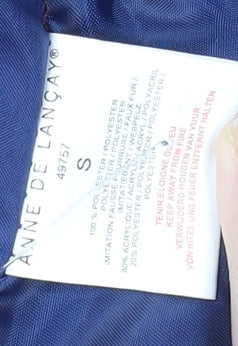 ANNE DE LANÇAY®
49757
S
100 % POLYESTER / POLYESTER
IMITATION FAUSSE FOURRURE / FAUX FUR /
IMITATIE / WEBPELZ
80% ACRYLIQUE / ACRYL / POLYACRIL
20% POLYESTER / POLYESTER /
POLYESTER /
TENIR ELOIGNE DU FEU
KEEP AWAY FROM FIRE
VERWIJDERD HOUDEN VAN VUUR
VON HITZE UND FEUER ENTFERNT HALTEN